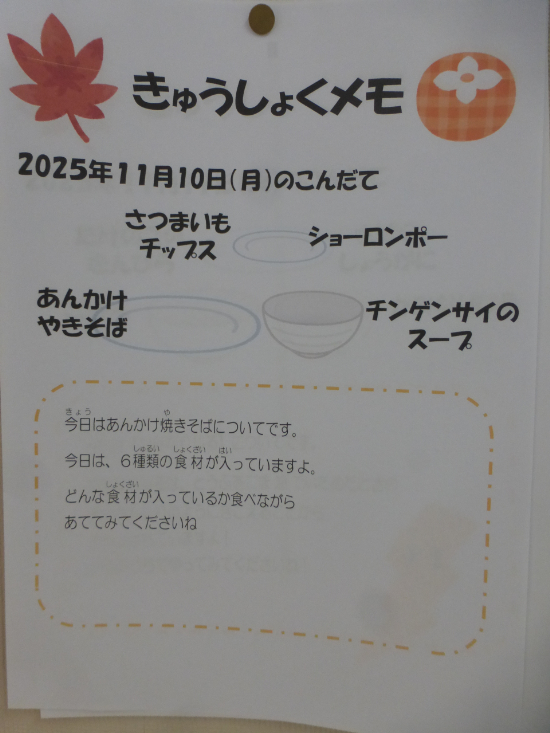 きゅうしょくメモ
2025年11月10日(月)のこんだて
さつまいも
チップス
ショーロンポー
あんかけ
やきそば
チンゲンサイの
スープ
今日はあんかけ焼きそばについてです。
今日は、6種類の食材が入っていますよ。
どんな食材が入っているか食べながら
あててみてくださいね